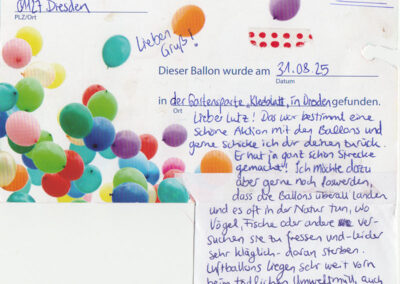 01127 Dresden
PLZ/Ort
Lieben
Gruß!
Dieser Ballon wurde am 31.08.25
Datum
in der Gartensparte „Kleeblatt“, in Dresden gefunden.
Ort
Lieber Lutz! Das war bestimmt eine
schöne Aktion mit den Ballons und
gerne schicke ich dir deinen zurück.
Er hat ja ganz schön Strecke
gemacht! Ich möchte dazu
aber gerne noch loswerden,
dass die Ballons überall landen
und es oft in der Natur tun, wo
Vögel, Fische oder andere ver-
suchen sie zu fressen und leider
sehr kläglich daran sterben.
Luftballons liegen sehr weit vorn
beim tödlichen Umweltmüll, auch